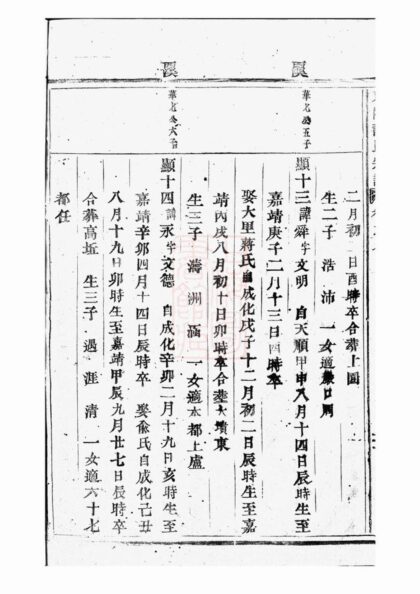 二月初 日酉時卒合葬上
生二子 浩 沛 一女適 口周
五子
顯十三諱舜字文明 自天順甲申八月十四日辰時生至
嘉靖庚子二月十三日酉時卒
娶大里蔣氏自成化戊子十二月初二日辰時生至嘉
靖丙戌八月初十日卯時卒合葬大墳東
生三子 濤 洲 涵 一女適本都上盧
六子
顯十四諱永字文德 自成化辛卯二月十九日亥時生至
嘉靖辛卯四月十四日辰時卒 娶俞氏自成化己丑
八月十九日卯時生至嘉靖甲辰九月廿七日辰時卒
合葬高坵 生三子 遇 涯 清 一女適六十七
都任